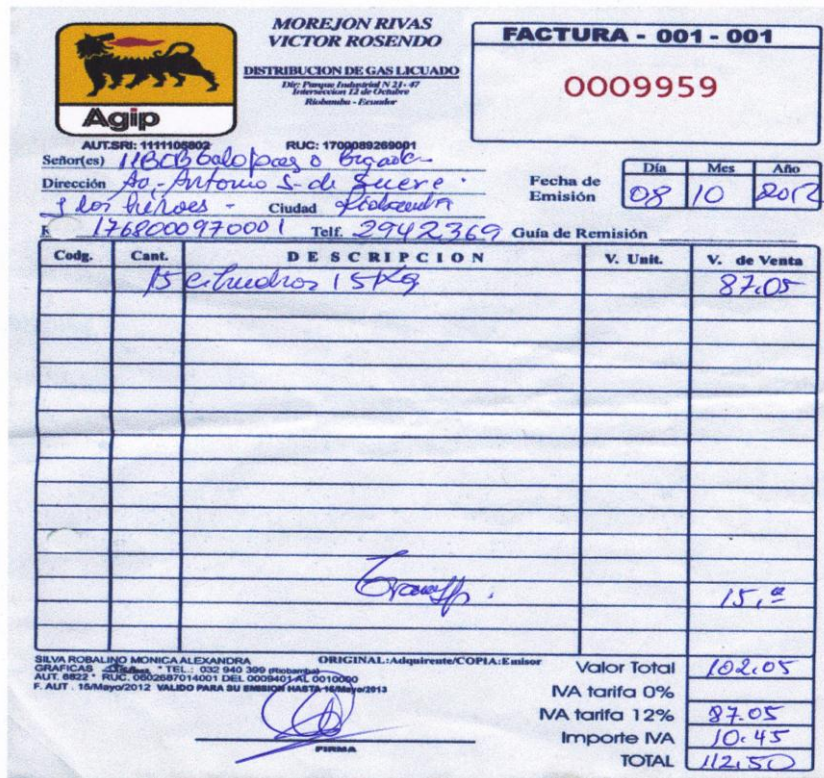 MOREJON RIVAS
VICTOR ROSENDO
DISTRIBUCION DE GAS LICUADO
Dir: Parque Industrial N 21- 47
Interseccion 12 de Octubre
Riobamba - Ecuador
Agip
FACTURA - 001 - 001
0009959
AUT.SRI: 1111105802 RUC: 1700089269001
Señor(es) 11BCB Galapagos
Dirección Av. Antonio S. de Sucre.
y los héroes - Ciudad Riobamba
1768000970001 Telf. 2942369 Guía de Remisión
Fecha de Emisión
Día Mes Año
08 10 2012
Codg. Cant. DESCRIPCION V. Unit. V. de Venta
15 cilindros 15Kg 87.05
Transp. 15,00
SILVA ROBALINO MONICA ALEXANDRA ORIGINAL:Adquirente/COPIA:Emisor
GRAFICAS * TEL.: 032 940 399 (Riobamba)
AUT. 6822 * RUC. 0602687014001 DEL 0009401 AL 0010000
F. AUT . 15/Mayo/2012 VALIDO PARA SU EMISION HASTA 15/Mayo/2013
FIRMA
Valor Total 102.05
IVA tarifa 0%
IVA tarifa 12% 87.05
Importe IVA 10.45
TOTAL 112.50